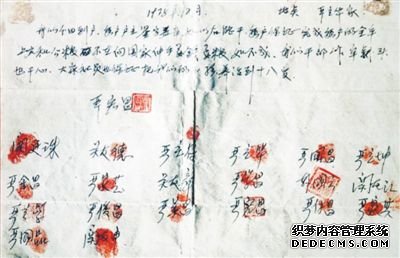 1978年12月 地点 严立华家
我们分田到户，每户户主签字盖章，如以后能干，每户保证完成每户的全年
上交和公粮，不在向国家伸手要钱要粮，如不成，我们干部作牢杀头
也干心，大家社员也保证把我们的小孩养活到十八岁
严宏昌
关廷珠 关友德 严立符 严立华 严国昌 严立坤
严金昌 严家芝 关友章 严学昌 韩国云 关友江
严立学 严俊昌 严美昌 严宏昌 严付昌 严家其
严国品 关友申
织梦内容管理系统
DEDECMS.COM